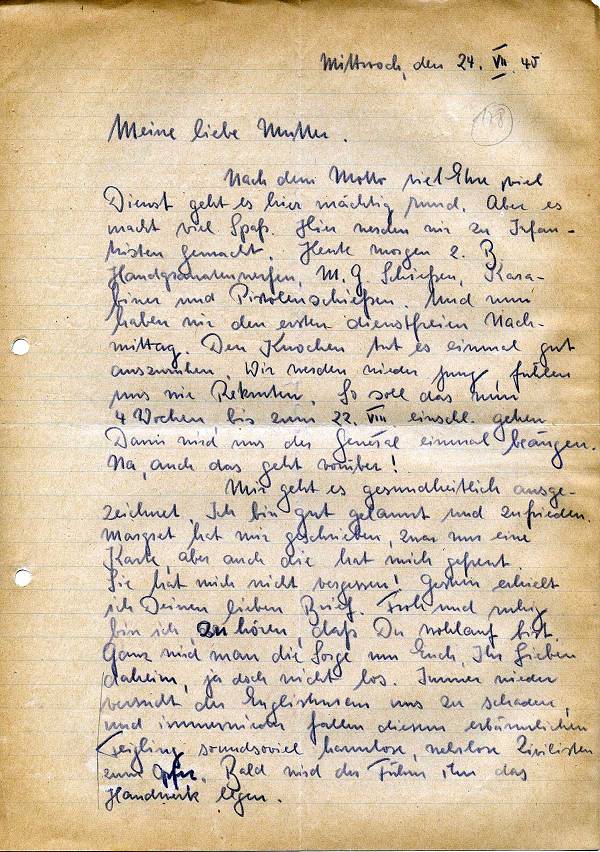 Mittwoch, den 24. VII. 40
118
Meine liebe Mutter.
Nach dem Motto viel Ehr, viel
Dienst geht es hier mächtig rund. Aber es
macht viel Spaß. Hier werden wir zu Infan-
risten gemacht. Heute morgen z. B.
Handgranatenwerfen, M.G. Schießen, Kara-
biner und Pistolenschießen. Und nun
haben wir den ersten dienstfreien Nach-
mittag. Den Knochen tut es einmal gut
auszuruhen. Wir werden wieder jung, fühlen
uns wie Rekruten. So soll das nun
4 Wochen bis zum 22. VIII einschl. gehen.
Dann wird uns der General einmal beäugen.
Na, auch das geht vorüber!
Mir geht es gesundheitlich ausge-
zeichnet. Ich bin gut gelaunt und zufrieden.
Margret hat mir geschrieben, zwar nur eine
Karte, aber auch die hat mich gefreut.
Sie hat mich nicht vergessen! Gestern erhielt
ich Deinen lieben Brief. Froh und ruhig
bin ich, zu hören, daß Du wohlauf bist.
Ganz wird man die Sorge um Euch, Ihr Lieben
daheim, ja doch nicht los. Immer wieder
versucht der Engländer uns zu schaden,
und immerwieder fallen diesem erbärmlichen
Feigling soundsoviel harmlose, wehrlose Zivilisten
zum Opfer. Bald wird der Führer ihm das
Handwerk legen.